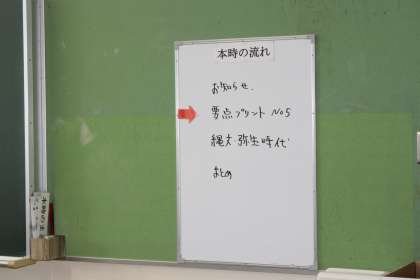 本時の流れ
お知らせ.
要点プリント No5
縄文・弥生時代
まとめ